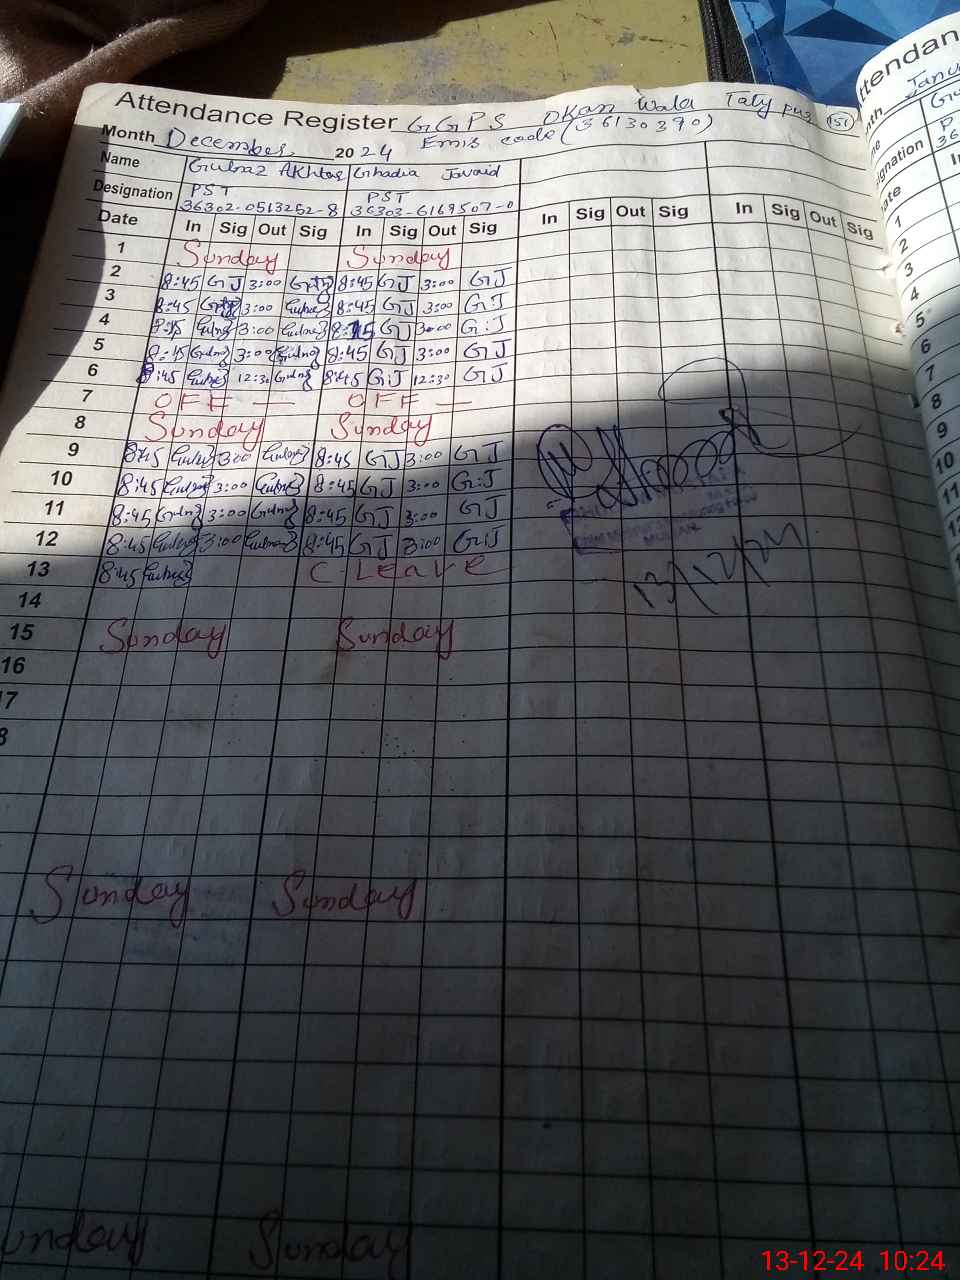 Attendance Register GGPS Okan Wala Taty pur (151)
Month December 2024 Emis code (36130390)
Name Gulnaz Akhtar Ghadia Javaid
Designation PST PST
36302-0513252-8 36303-6169507-0
Date In Sig Out Sig In Sig Out Sig In Sig Out Sig In Sig Out Sig
1 Sunday Sunday
2 8:45 GJ 3:00 8:45 GJ 3:00 GJ
3 8:45 3:00 Gulnaz 8:45 GJ 3:00 G:J
4 Gulnaz 3:00 Gulnaz 8:45 GJ 3:00 G:J
5 8:45 Gulnaz 3:00 Gulnaz 8:45 GJ 3:00 GJ
6 8:45 Gulnaz 12:30 Gulnaz 8:45 G:J 12:30 GJ
7 OFF — OFF —
8 Sunday Sunday
9 8:45 Gulnaz 3:00 Gulnaz 8:45 GJ 3:00 GJ
10 8:45 Gulnaz 3:00 Gulnaz 8:45 GJ 3:00 G:J
11 8:45 Gulnaz 3:00 Gulnaz 8:45 GJ 3:00 GJ
12 8:45 Gulnaz 3:00 Gulnaz 8:45 GJ 3:00 G:J
13 8:45 Gulnaz C-Leave
13/12/24
14
15 Sunday Sunday
16
17
8
Sunday Sunday
unday Sunday
Attendan
nth Janu
me
signation
ate
1
2
3
4
5
6
7
8
9
10
11
13-12-24 10:24